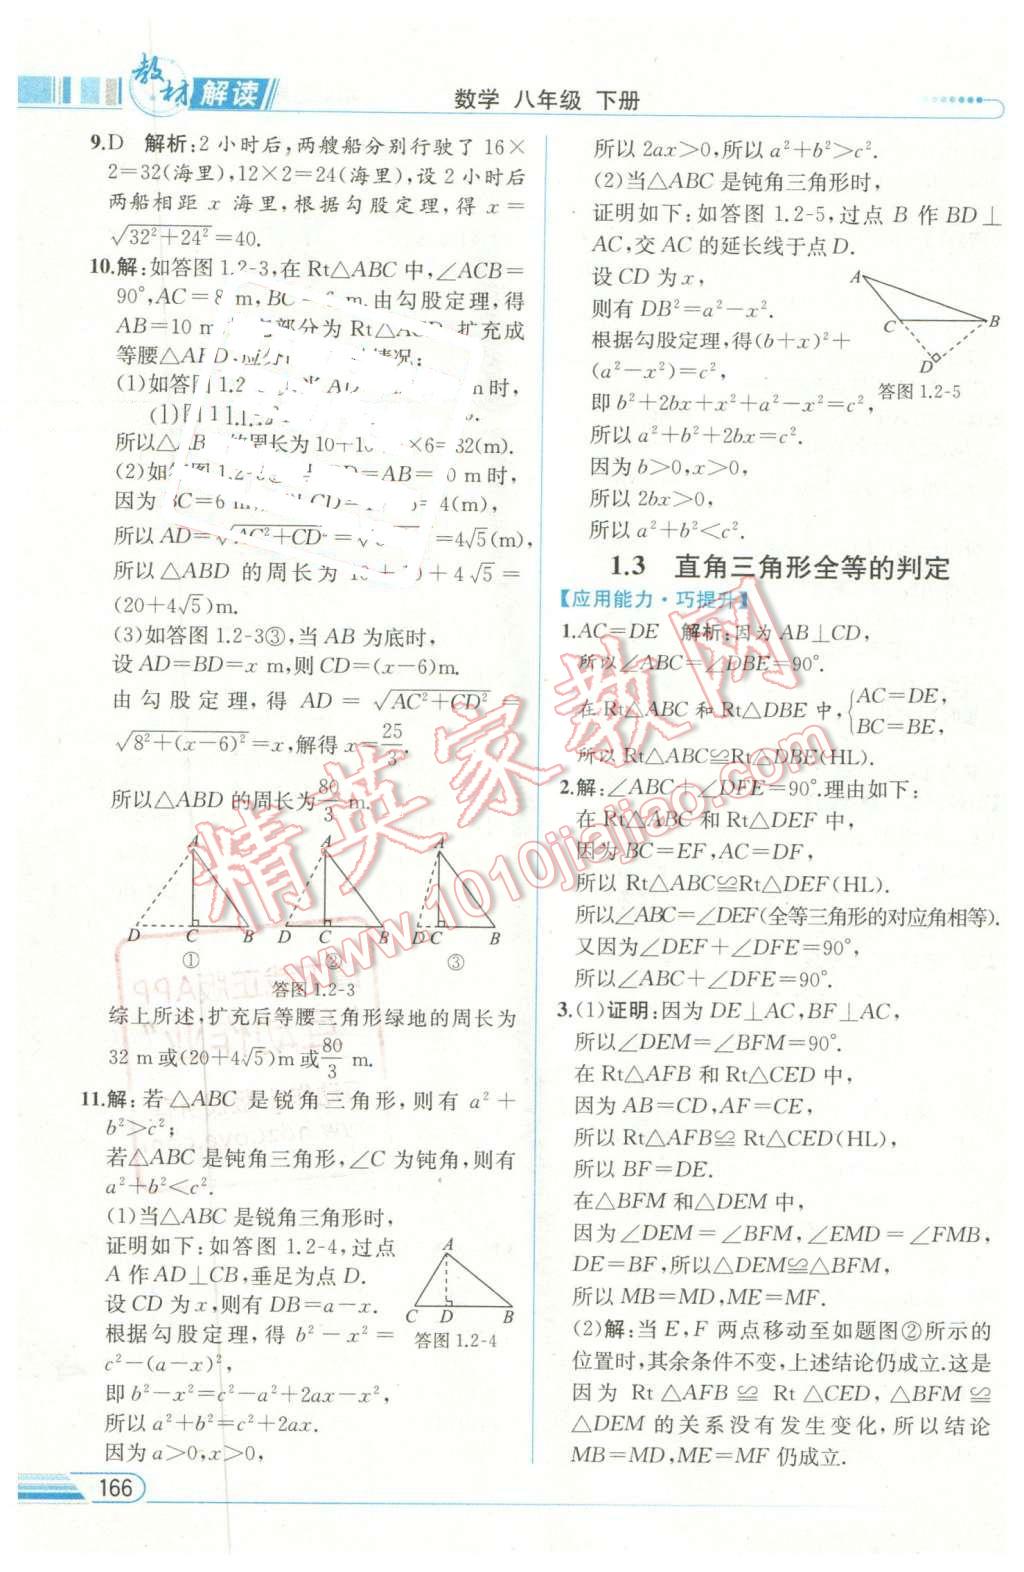 教材解读
数学 八年级 下册
9.D 解析:2小时后,两艘船分别行驶了16×
2=32(海里),12×2=24(海里),设2小时后
两船相距x海里,根据勾股定理,得x=
√(32²+24²)=40.
10.解:如答图1.2-3,在Rt△ABC中,∠ACB=
90°,AC=8 m,BC= m.由勾股定理,得
AB=10 m 部分为Rt△A 扩充成
等腰△AB 情况:
(1)如答 1.2- AD m时,
所以△AB 的周长为10+10 ×6=32(m).
(2)如 1.2-3 D=AB= 0 m时,
因为BC=6 CD= 4(m),
所以AD=√(AC²+CD²)= =4√5(m),
所以△ABD的周长为10+10+4√5=
(20+4√5)m.
(3)如答图1.2-3③,当AB为底时,
设AD=BD=x m,则CD=(x-6)m.
由勾股定理,得AD=√(AC²+CD²)=
√(8²+(x-6)²)=x,解得x=25/3,
所以△ABD的周长为80/3 m.
A A A
D C B D C B D C B
① ② ③
答图1.2-3
综上所述,扩充后等腰三角形绿地的周长为
32 m或(20+4√5)m或80/3 m.
11.解:若△ABC是锐角三角形,则有a²+
b²>c²;
若△ABC是钝角三角形,∠C为钝角,则有
a²+b²<c².
(1)当△ABC是锐角三角形时,
证明如下:如答图1.2-4,过点
A作AD⊥CB,垂足为点D.
设CD为x,则有DB=a-x.
根据勾股定理,得b²-x²=
c²-(a-x)²,
即b²-x²=c²-a²+2ax-x²,
所以a²+b²=c²+2ax.
因为a>0,x>0,
A
C D B
答图1.2-4
166
所以2ax>0,所以a²+b²>c².
(2)当△ABC是钝角三角形时,
证明如下:如答图1.2-5,过点B作BD⊥
AC,交AC的延长线于点D.
设CD为x,
则有DB²=a²-x².
根据勾股定理,得(b+x)²+
(a²-x²)=c²,
即b²+2bx+x²+a²-x²=c²,
所以a²+b²+2bx=c².
因为b>0,x>0,
所以2bx>0,
所以a²+b²<c².
A
C B
D
答图1.2-5
1.3 直角三角形全等的判定
【应用能力·巧提升】
1.AC=DE 解析:因为AB⊥CD,
所以∠ABC=∠DBE=90°.
在Rt△ABC和Rt△DBE中,{AC=DE,
BC=BE,
所以Rt△ABC≌Rt△DBE(HL).
2.解:∠ABC+∠DFE=90°.理由如下:
在Rt△ABC和Rt△DEF中,
因为BC=EF,AC=DF,
所以Rt△ABC≌Rt△DEF(HL).
所以∠ABC=∠DEF(全等三角形的对应角相等).
又因为∠DEF+∠DFE=90°,
所以∠ABC+∠DFE=90°.
3.(1)证明:因为DE⊥AC,BF⊥AC,
所以∠DEM=∠BFM=90°.
在Rt△AFB和Rt△CED中,
因为AB=CD,AF=CE,
所以Rt△AFB≌Rt△CED(HL),
所以BF=DE.
在△BFM和△DEM中,
因为∠DEM=∠BFM,∠EMD=∠FMB,
DE=BF,所以△DEM≌△BFM,
所以MB=MD,ME=MF.
(2)解:当E,F两点移动至如题图②所示的
位置时,其余条件不变,上述结论仍成立.这是
因为Rt△AFB≌Rt△CED,△BFM≌
△DEM的关系没有发生变化,所以结论
MB=MD,ME=MF仍成立.
精英家教网
www.1010jiajiao.com